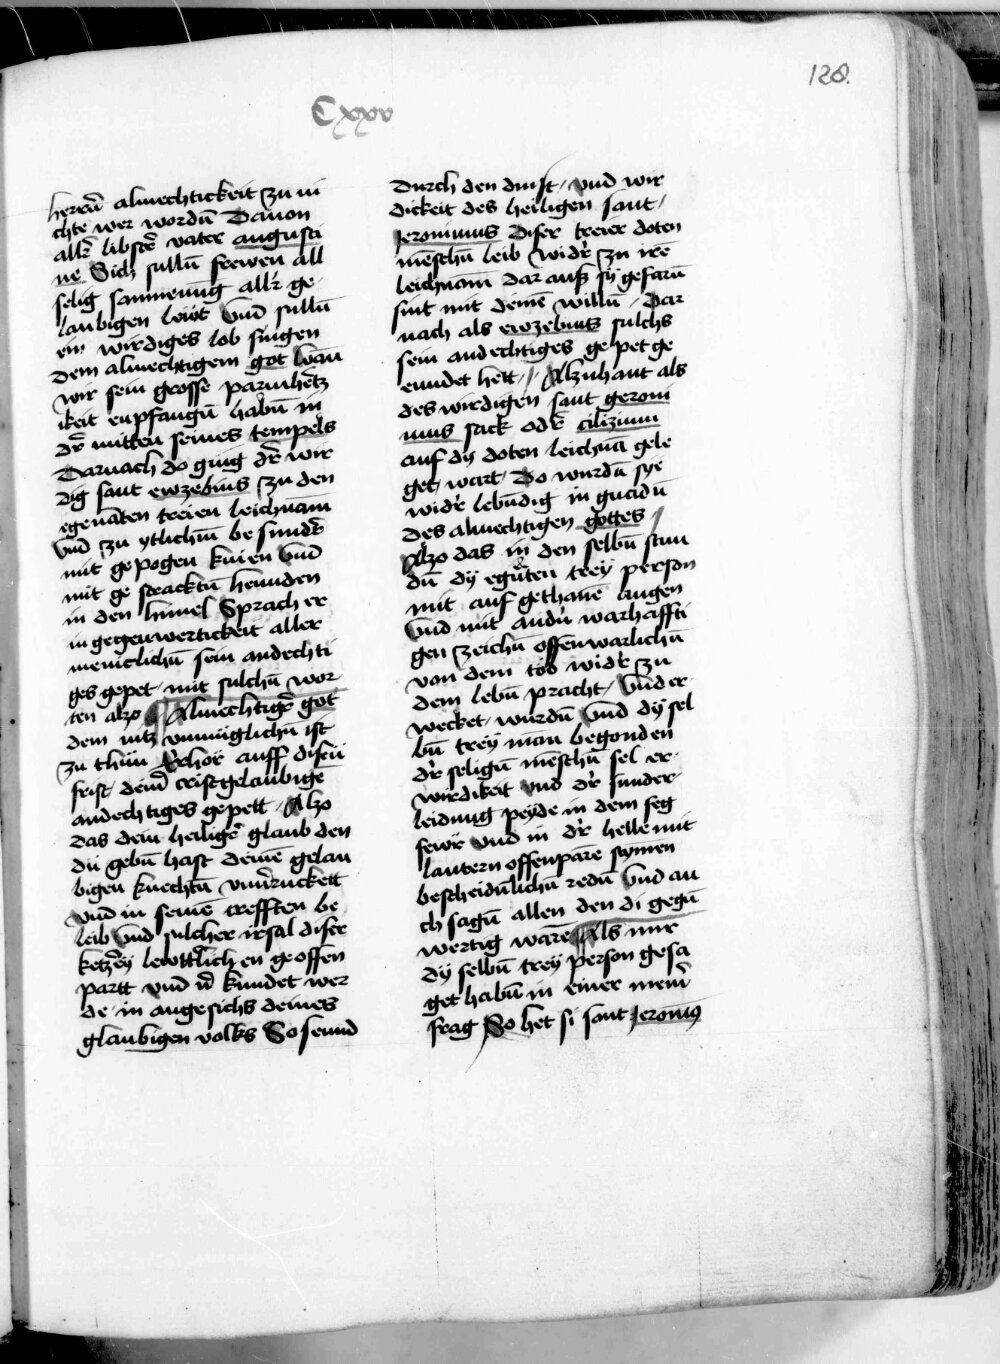 128.
Cxxv
herrū almechtickeit zu ni
chte wer wordū Dauon
allr̄ libster vater augusti
ne Sich sullū frewen all
selig sammenūg allr̄ ge
laubigen lewt Vnd sullū
ein wirdiges lob singen
dem almechtigem got wan̄
wir sein grosse parmhertz
ikeit enpfangū habū in
dr̄ mitten seines tempels
Darnach do ging dr̄ wir
dig sant ewzebius zu den
egenāten treien leichnam̄
Vnd zu ytlichū be sundr̄
mit ge pogen knien Vnd
mit ge stracktū hennden
in den himel Sprach er
in gegenwertickeit aller
meniclichū sein andechti
ges gepet mit sulchū wor
ten alzo Almechtigr̄ got
dem nitz vnmüglichū ist
zu thün Erhör auff disen̄
frist deinē cristgelaubigē
andechtiges gepett Alzo
das dein heiligr̄ glaub den
du gebū hast deinē gelau
bigen knechtū vnuerruckett
vnd in seinē crefften be
leib Vnd sulcher irsal diser
ketzrey lewttlich en geoffen
partt vnd v̄ kundet wer
de in angesichs deines
glaubigen volks So send
Durch den dinst vnd wir
dickeit des heiligen sant
Jeronimus Diser treier doten
menschū leib widr̄ zu irē
leichnam̄ dar auß sy gefarū
sint mit deinē willū Dar
nach als ewzebius sulchs
sein andechtiges ge pet ge
enndet hett Alzuhant als
des wirdigen sant geroni
mus sack odr̄ cilizium
auf dy doten leichnā gele
get wart Do wurdū sye
widr̄ lebūdig in gnadū
des almechtigen gottes
Alzo das in den selbū stun
dū dy egnten trey person
mit auf gethanē augen
Vnd mit andrū warhaffti
gen zeichū offenwarlichū
von dem tod widr̄ zu
dem lebū pracht Vnd er
wecket wurdū Vnd dy sel
bū trey man begonden
dr̄ seligū menschū sel er
wirdikeit vnd dr̄ sunder
leidnug peyde in dem feg
fewr vnd in dr̄ helle mit
lautern offenparē stymen
bescheidūlichū redū Vnd au
ch sagū allen den di gegū
wertig warē Als mir
dy selbū trey person gesa
get habū in einer meinr̄
frag So het si sant Jeronimus